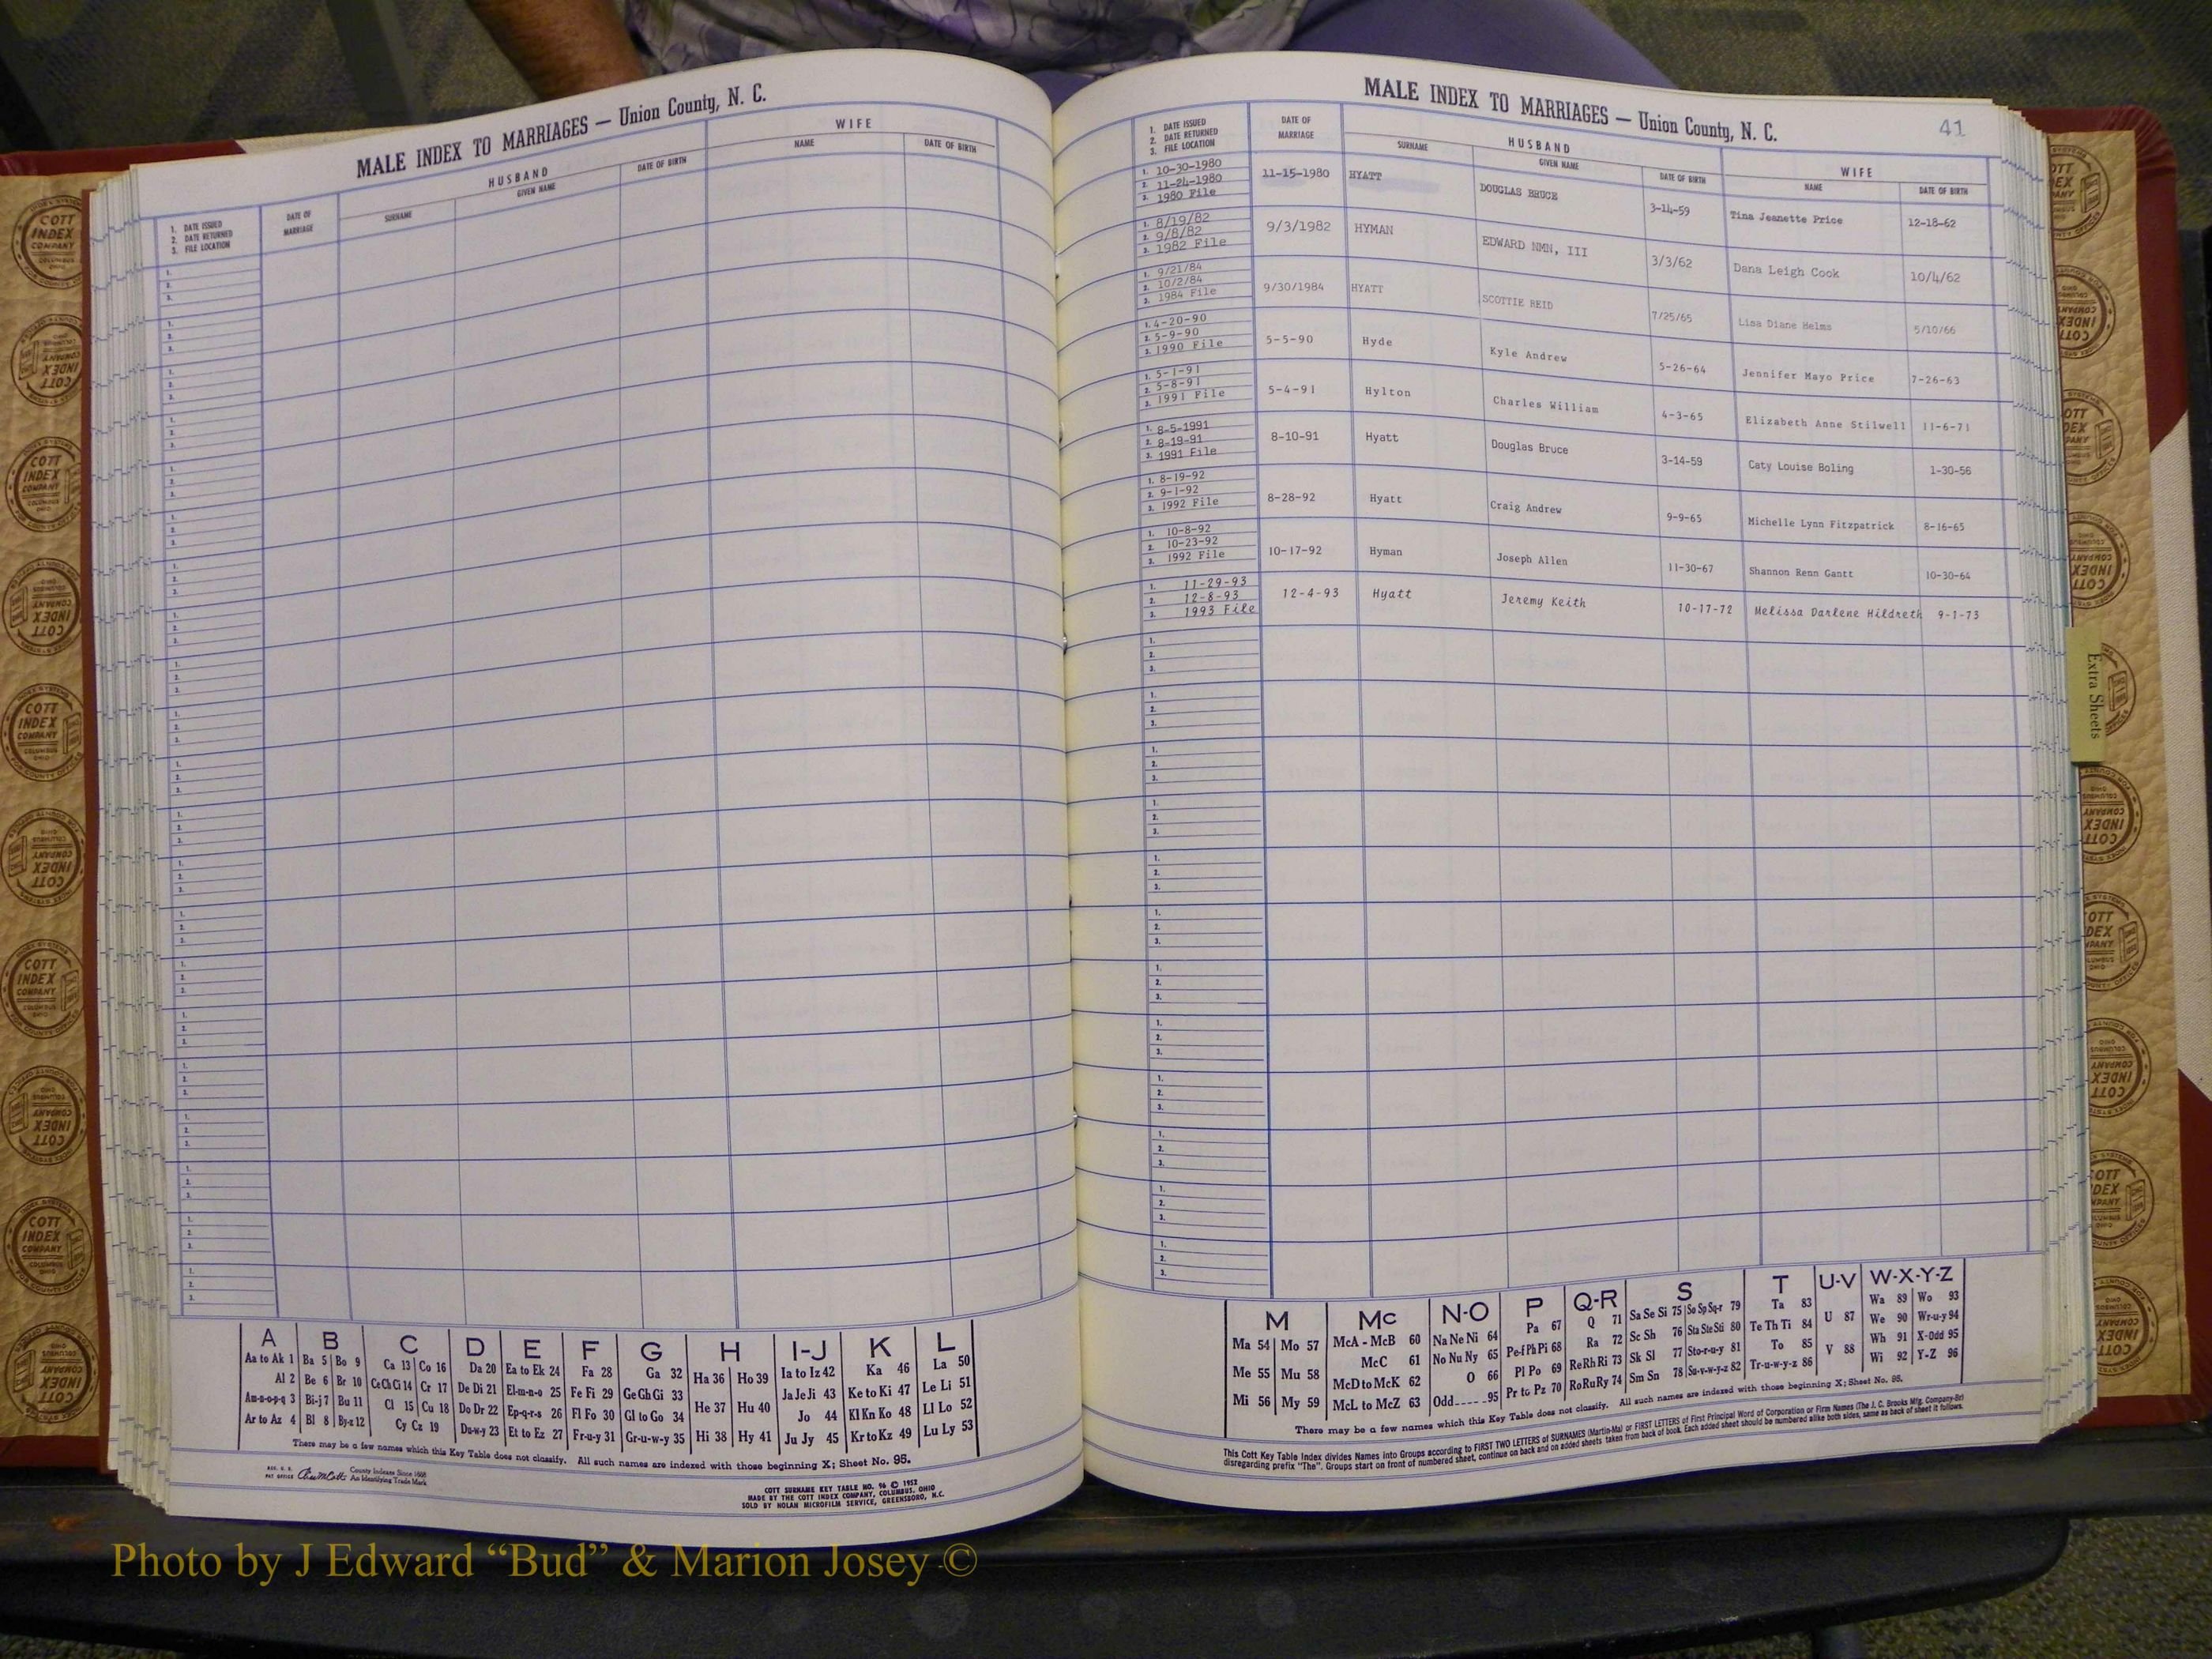 MALE INDEX TO MARRIAGES — Union County, N. C.
1. DATE ISSUED
2. DATE RETURNED
3. FILE LOCATION
DATE OF MARRIAGE
HUSBAND
SURNAME GIVEN NAME DATE OF BIRTH
WIFE
NAME DATE OF BIRTH
A B C D E F G H I-J K L
Aa to Ak 1 Ba 5 Bo 9 Ca 13 Co 16 Da 20 Ea to Ek 24 Fa 28 Ga 32 Ha 36 Ho 39 Ia to Iz 42 Ka 46 La 50
Al 2 Be 6 Br 10 Ce Ch Ci 14 Cr 17 De Di 21 El-m-n-o 25 Fe Fi 29 Ge Gh Gi 33 He 37 Hu 40 Ja Je Ji 43 Ke to Ki 47 Le Li 51
Am-n-o-p-q 3 Bi-j 7 Bu 11 Cl 15 Cu 18 Do Dr 22 Ep-q-r-s 26 Fl Fo 30 Gl to Go 34 Hi 38 Hy 41 Jo 44 Kl Kn Ko 48 Ll Lo 52
Ar to Az 4 Bl 8 By-z 12 Cy Cz 19 Du-w-y 23 Et to Ez 27 Fr-u-y 31 Gr-u-w-y 35 Ju Jy 45 Kr to Kz 49 Lu Ly 53
There may be a few names which this Key Table does not classify. All such names are indexed with those beginning X; Sheet No. 95.
County Indexes Since 1888
An Identifying Trade Mark
COTT SURNAME KEY TABLE NO. 96 © 1952
MADE BY THE COTT INDEX COMPANY, COLUMBUS, OHIO
SOLD BY NOLAN MICROFILM SERVICE, GREENSBORO, N.C.
MALE INDEX TO MARRIAGES — Union County, N. C.
41
1. DATE ISSUED
2. DATE RETURNED
3. FILE LOCATION
DATE OF MARRIAGE
HUSBAND
SURNAME GIVEN NAME DATE OF BIRTH
WIFE
NAME DATE OF BIRTH
1. 10-30-1980
2. 11-24-1980
3. 1980 File
11-15-1980 HYATT DOUGLAS BRUCE 3-14-59 Tina Jeanette Price 12-18-62
1. 8/19/82
2. 9/8/82
3. 1982 File
9/3/1982 HYMAN EDWARD NMN, III 3/3/62 Dana Leigh Cook 10/4/62
1. 9/21/84
2. 10/2/84
3. 1984 File
9/30/1984 HYATT SCOTTIE REID 7/25/65 Lisa Diane Helms 5/10/66
1. 4-20-90
2. 5-9-90
3. 1990 File
5-5-90 Hyde Kyle Andrew 5-26-64 Jennifer Mayo Price 7-26-63
1. 5-1-91
2. 5-8-91
3. 1991 File
5-4-91 Hylton Charles William 4-3-65 Elizabeth Anne Stilwell 11-6-71
1. 8-5-1991
2. 8-19-91
3. 1991 File
8-10-91 Hyatt Douglas Bruce 3-14-59 Caty Louise Boling 1-30-56
1. 8-19-92
2. 9-1-92
3. 1992 File
8-28-92 Hyatt Craig Andrew 9-9-65 Michelle Lynn Fitzpatrick 8-16-65
1. 10-8-92
2. 10-23-92
3. 1992 File
10-17-92 Hyman Joseph Allen 11-30-67 Shannon Renn Gantt 10-30-64
1. 11-29-93
2. 12-8-93
3. 1993 File
12-4-93 Hyatt Jeremy Keith 10-17-72 Melissa Darlene Hildreth 9-1-73
Extra Sheets
M Mc N-O P Q-R S T U-V W-X-Y-Z
Ma 54 Mo 57 McA - McB 60 Na Ne Ni 64 Pa 67 Q 71 Sa Se Si 75 So Sp Sq-r 79 Ta 83 U 87 Wa 89 Wo 93
Me 55 Mu 58 McC 61 No Nu Ny 65 Pe-f Ph Pi 68 Ra 72 Sc Sh 76 Sta Ste Sti 80 Te Th Ti 84 V 88 We 90 Wr-u-y 94
Mi 56 My 59 McD to McK 62 O 66 Pl Po 69 Re Rh Ri 73 Sk Sl 77 Sto-r-u-y 81 To 85 Wh 91 X-Odd 95
McL to McZ 63 Odd 95 Pr to Pz 70 Ro Ru Ry 74 Sm Sn 78 Su-v-w-y-z 82 Tr-u-w-y-z 86 Wi 92 Y-Z 96
There may be a few names which this Key Table does not classify. All such names are indexed with those beginning X; Sheet No. 95.
This Cott Key Table Index divides Names into Groups according to FIRST TWO LETTERS of SURNAMES (Martin-Ma) or FIRST LETTERS of First Principal Word of Corporation or Firm Names (The J. C. Brooks Mfg. Company-Br)
disregarding prefix "The". Groups start on front of numbered sheet, continue on back and on added sheets taken from back of book. Each added sheet should be numbered alike both sides, same as back of sheet it follows.
COTT INDEX COMPANY COLUMBUS OHIO
Photo by J Edward “Bud” & Marion Josey ©